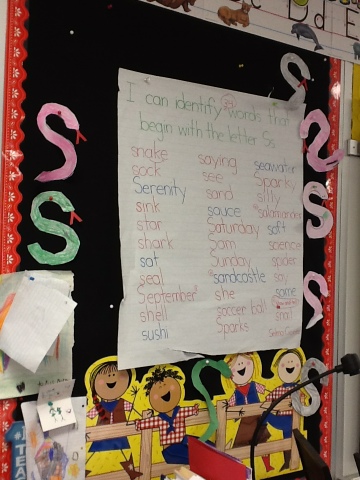 I can identify words that
begin with the letter Ss
snake
sock
Serenity
sink
star
shark
sat
seal
September
shell
sushi
saying
see
sand
sauce
Saturday
Sam
Sunday
sandcastle
she
soccer ball
Sparks
seawater
Sparky
silly
salamander
soft
science
spider
say
same
snail
D d E
TEA